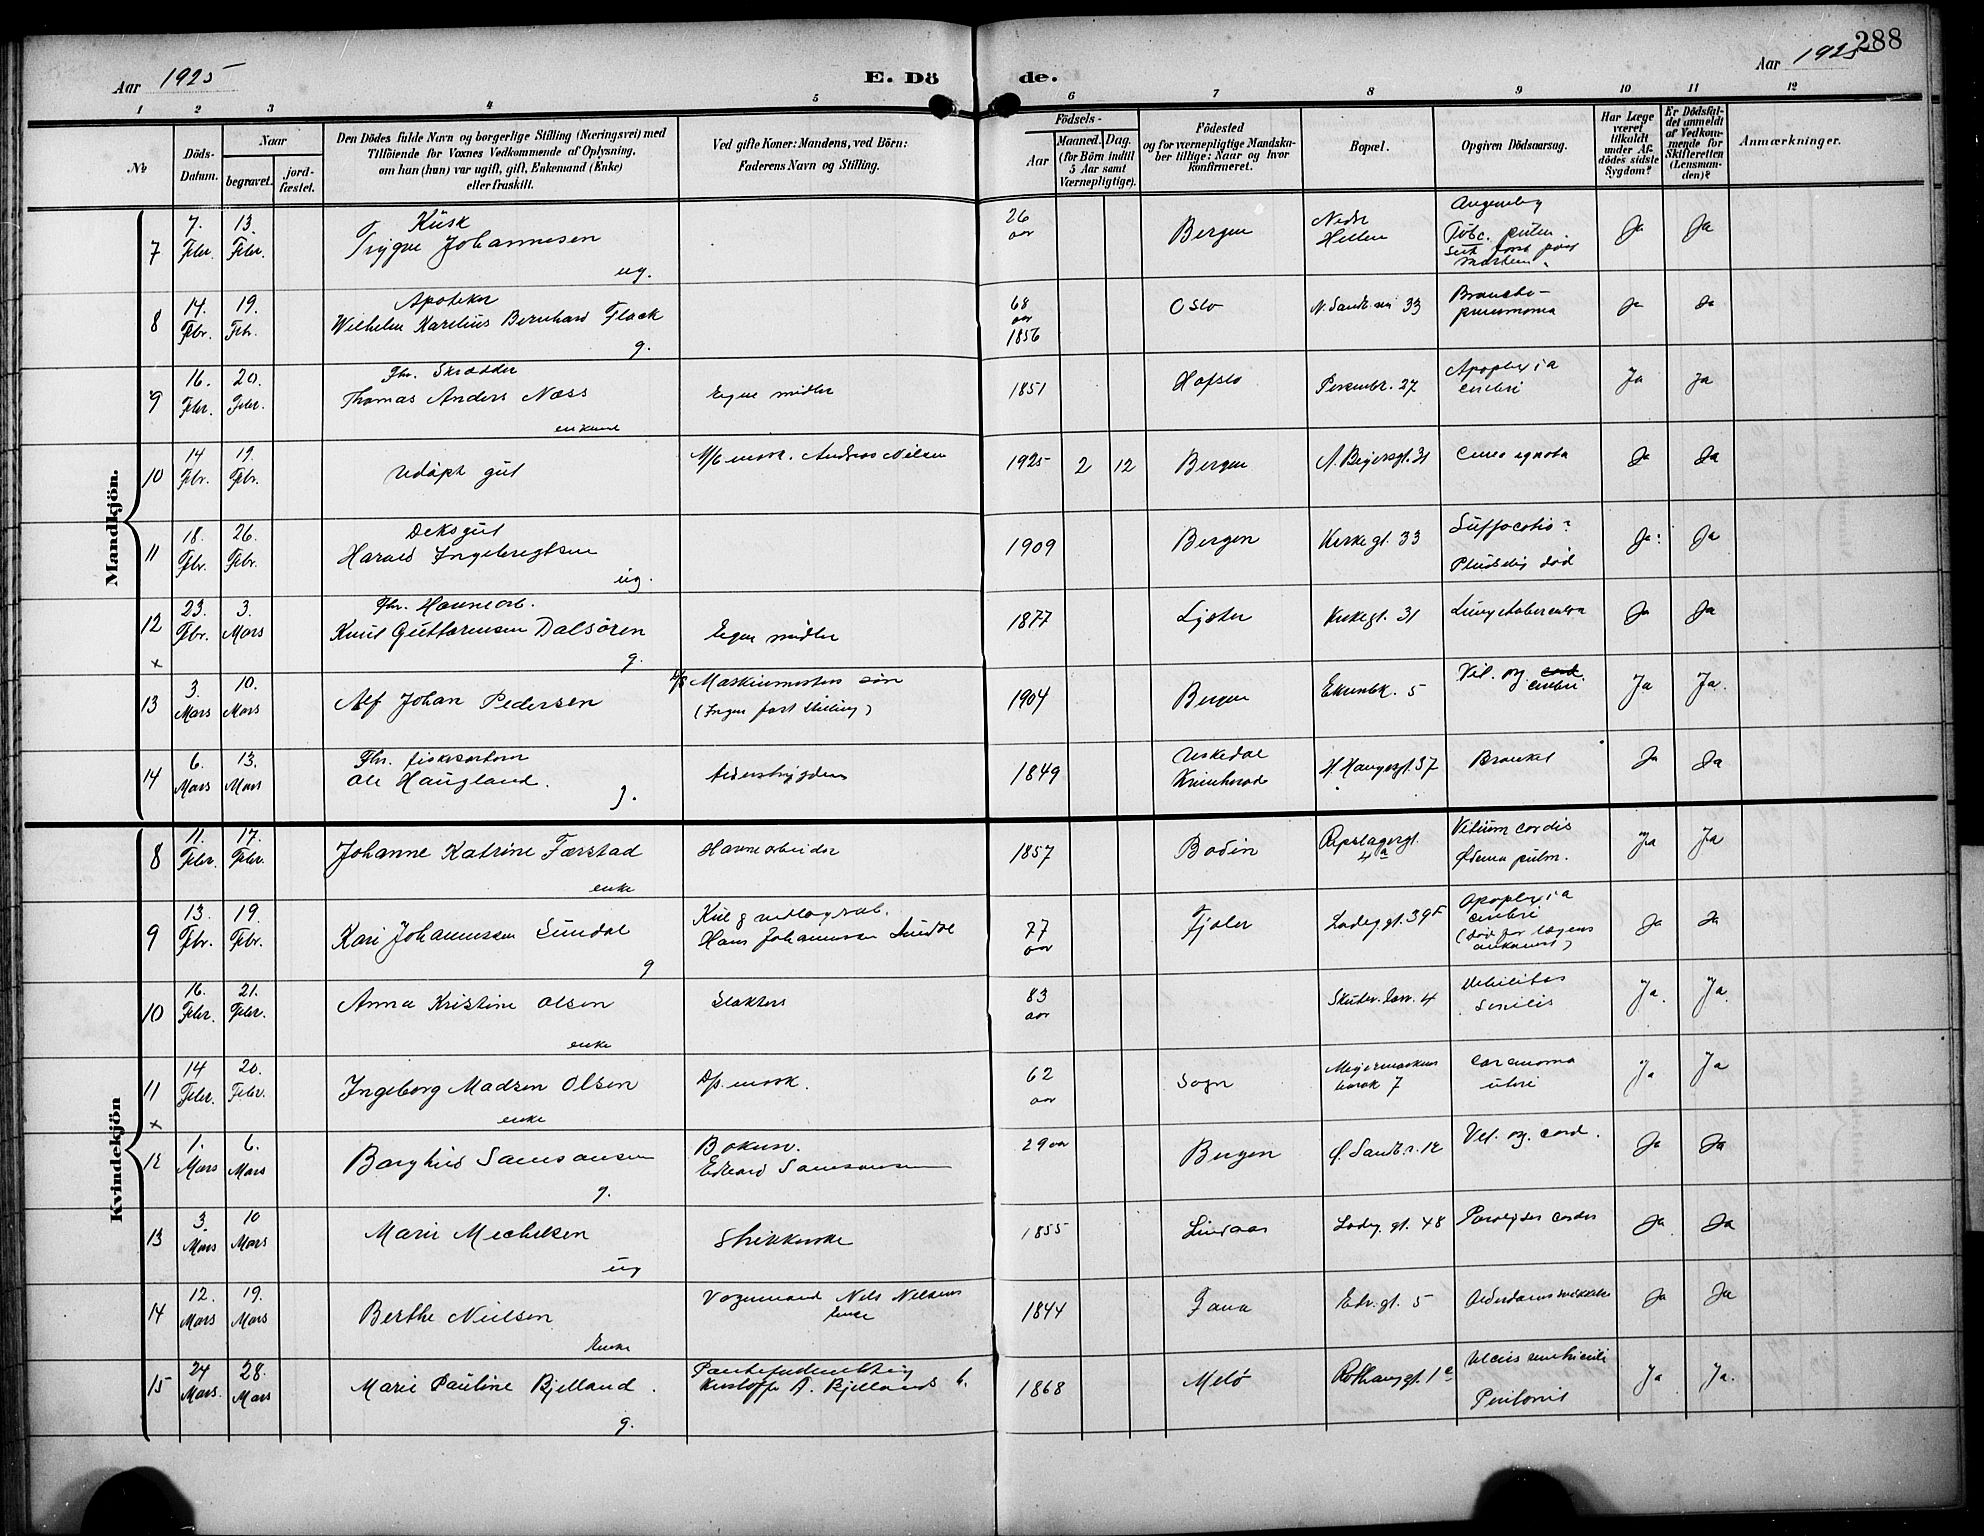 288
Aar 1925
E. Dö de.
Aar 1925
1 2 3 4 5 6 7 8 9 10 11 12
No
Döds-Datum.
Naar
begravet.
jord-fæstet.
Den Dödes fulde Navn og borgerlige Stilling (Næringsvei) med
Tilföiende for Voxnes Vedkommende af Oplysning,
om han (hun) var ugift, gift, Enkemand (Enke)
eller fraskilt.
Ved gifte Koner: Mandens, ved Börn:
Faderens Navn og Stilling.
Födsels-
Aar
Maaned. Dag.
(for Börn indtil
5 Aar samt
Værnepligtige).
Födested
og for værnepligtige Mandska-
ber tillige: Naar og hvor
konfirmeret.
Bopæl.
Opgiven Dödsaarsag.
Har Læge
været
tilkaldt
under Af-
dödes sidste
Sygdom?
Er Dödsfal-
det anmeldt
af Vedkom-
mende for
Skifteretten
(Lensman-
den)?
Anmærkninger.
Mandkjön.
7 7. Febr. 13. Febr. Kusk
Trygve Johannesen
ug.
26 aar Bergen Nedr Hellen
Tubc. pulm.
Ja Ja
8 14. Febr. 19. Febr. Apoteker
Wilhelm Karelius Bernhard Flack
g.
68 aar 1856 Oslo N. Sandv.vei 33 Broncho-
pneumonia Ja Ja
9 16. Febr. 20. Febr. Fhv. Skrædder
Thomas Anders Næss
enkem.
Egne midler 1851 Hafslo 27 Apoplexia
cerebri Ja Ja
10 14 Febr. 19. Febr. Udöpt gut
Andreas Nilsen 1925 2 12 Bergen 31 Causa ignota Ja Ja
11 18. Febr. 26. Febr. Deksgut
Harald Ingebregtsen
ug.
1909 Bergen Kirkegt. 33 Suffocatio?
Pludselig död Ja Ja
12 23. Febr. 3. Mars Fhv. Havnearb.
Knut Guttormsen Dalsören
g.
Egne midler 1877 Lyster Kirkegt. 31 Lungetuberculose Ja Ja
x
13 3. Mars 10. Mars Alf Johan Pedersen
Maskinmesters sön
(Ingen fast stilling)
1904 Bergen 5 Vit. org. cord.
cerebri Ja Ja.
14 6. Mars 13. Mars Fhv.
Ole Haugland.
g.
Alderstrygden 1849 Uskedal
Kvinherad H. Haugesgt. 37 Bronkit Ja Ja
Kvindekjön
8 11. Febr. 17. Febr. Johanne Katrine Færstad
enke
Havnearbeider 1857 Bodin Repslagergt.
4a Vitium cordis
Ødema pulm. Ja Ja
9 13. Febr. 19. Febr. Kari Johannessen Sundal
g
Kul &
Hans Johannessen Sundal
77 aar Fjaler Ladeg.gt. 39F Apoplexia
cerebri
(död för lægens
ankomst) Ja Ja
10 16. Febr. 21. Febr. Anna Kristine Olsen
enke
Slakters 83 aar 4 Debilitas
Senilis Ja. Ja.
11 14 Febr. 20. Febr. Ingeborg Madsen Olsen
enke
D/s. mask. 62 aar Sogn 7 Carcinoma
uteri Ja Ja
x
12 1. Mars 6. Mars Borghild Samsonsen
g.
Edvard Samsonsen
29 aar Bergen 12 Vit. org. cord. Ja Ja
13 3. Mars 10 Mars Marie Mechelsen
ug
Strikkerske 1855 Lindaas Ladeg. gt. 48 Paralysis cordis Ja Ja
14 12. Mars 19. Mars Berthe Nielsen
Enke
Vognmand Nels Nelsens
Enke
1844 Fana Edv.gt. 5 Alderdomssvækkelse Ja Ja
15 24 Mars. 28. Mars Marie Pauline Bjelland.
g.
Kristoffer A. Bjellands
1868 Melö Rothaugt. 1e Ulcus ventriculi
Peritonit Ja Ja.